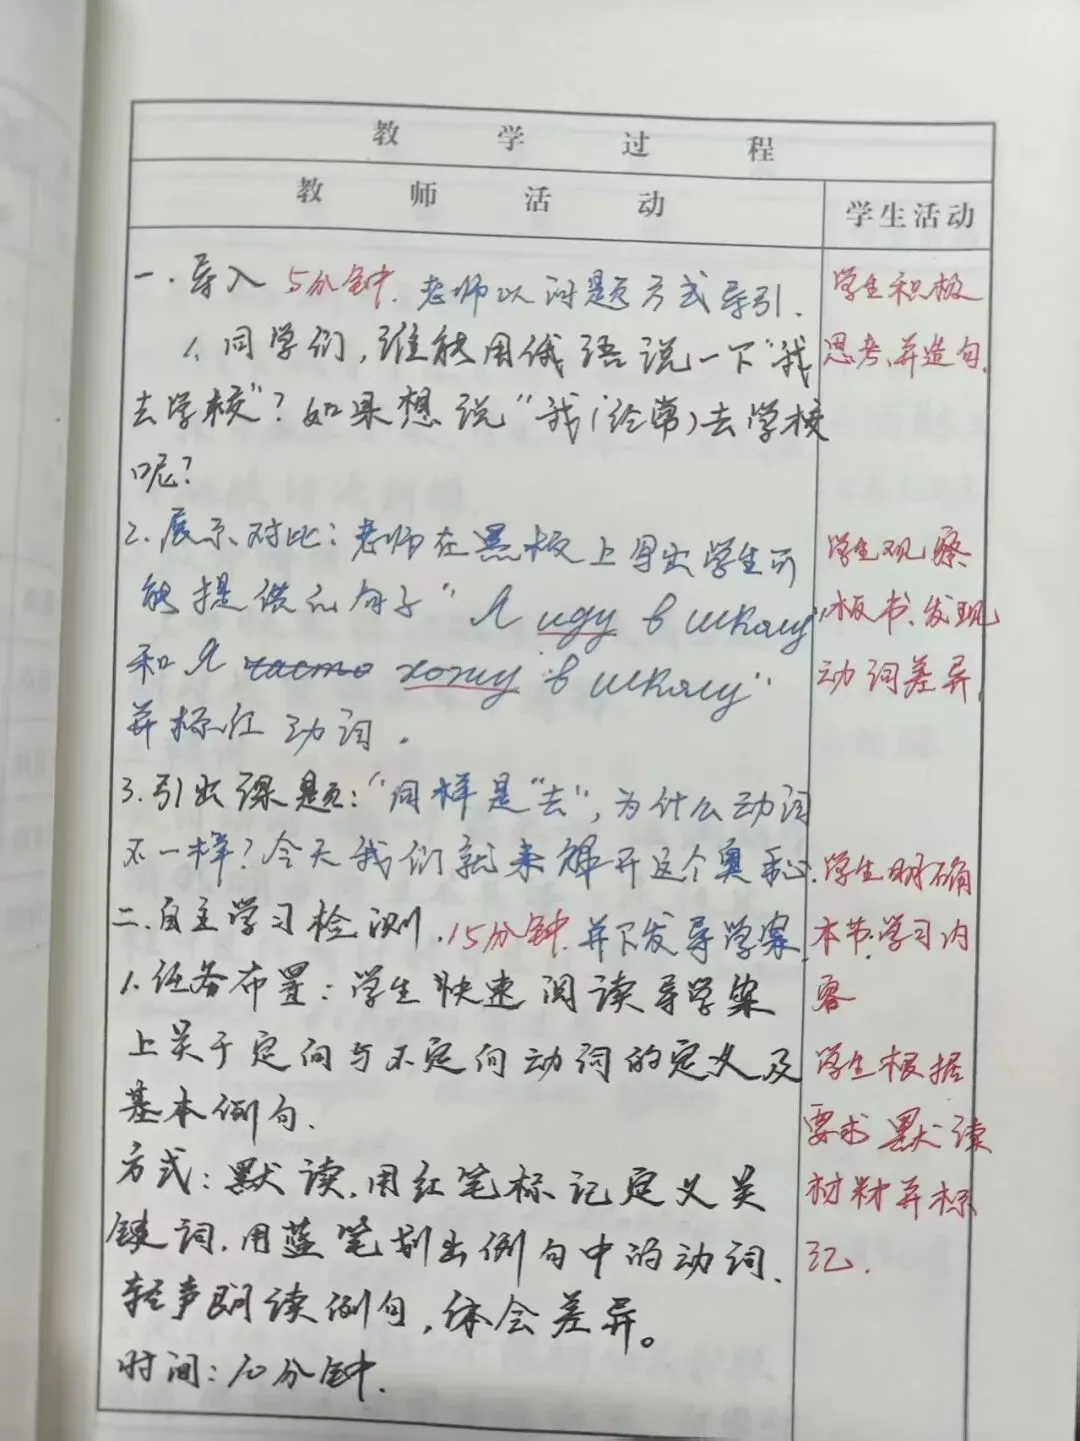 教学过程
教师活动
学生活动
一.导入 5分钟.老师以问题方式导引.
1.同学们,谁能用俄语说一下"我
去学校"?如果想说"我(经常)去学校
呢?
2.展示对比:老师在黑板上写出学生可
能提供的句子"Я иду в школу"
和Я часто хожу в школу"
并标红动词.
3.引出课题:"同样是"去",为什么动词
不一样?今天我们就来解开这个奥秘.
二.自主学习检测.15分钟.并下发导学案.
1.任务布置:学生快速阅读导学案
上关于定向与不定向动词的定义及
基本例句.
方式:默读.用红笔标记定义关
键词.用蓝笔划出例句中的动词.
轻声朗读例句,体会差异。
时间:10分钟.
学生积极
思考,并造句.
学生观察
板书.发现
动词差异.
学生明确
本节学习内
容
学生根据
要求默读
材料并标
记.